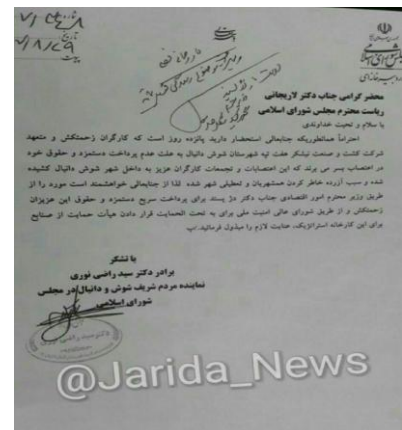 تاریخ
پیوست
محضر گرامی جناب دکتر لاریجانی
ریاست محترم مجلس شورای اسلامی
با سلام و تحیت خداوندی
احتراماً همانطوریکه جنابعالی استحضار دارید پانزده روز است که کارگران زحمتکش و متعهد
شرکت کشت و صنعت نیشکر هفت تپه شهرستان شوش دانیال به علت عدم پرداخت دستمزد و حقوق خود
در اعتصاب بسر می برند که این اعتصابات و تجمعات کارگران عزیز به داخل شهر شوش دانیال کشیده
شده و سبب آزرده خاطر کردن همشهریان و تعطیلی شهر شده لذا از جنابعالی خواهشمند است مورد را از
طریق وزیر محترم امور اقتصادی جناب دکتر دژ پسند برای پرداخت سریع دستمزد و حقوق این عزیزان
زحمتکش و از طریق شورای عالی امنیت ملی برای به تحت الحمایت قرار دادن هیأت حمایت از صنایع
برای این کارخانه استراتژیک، عنایت لازم را مبذول فرمائید.
با تشکر
برادر دکتر سید راضی نوری
نماینده مردم شریف شوش و دانیال در مجلس
شورای اسلامی
@Jarida_News